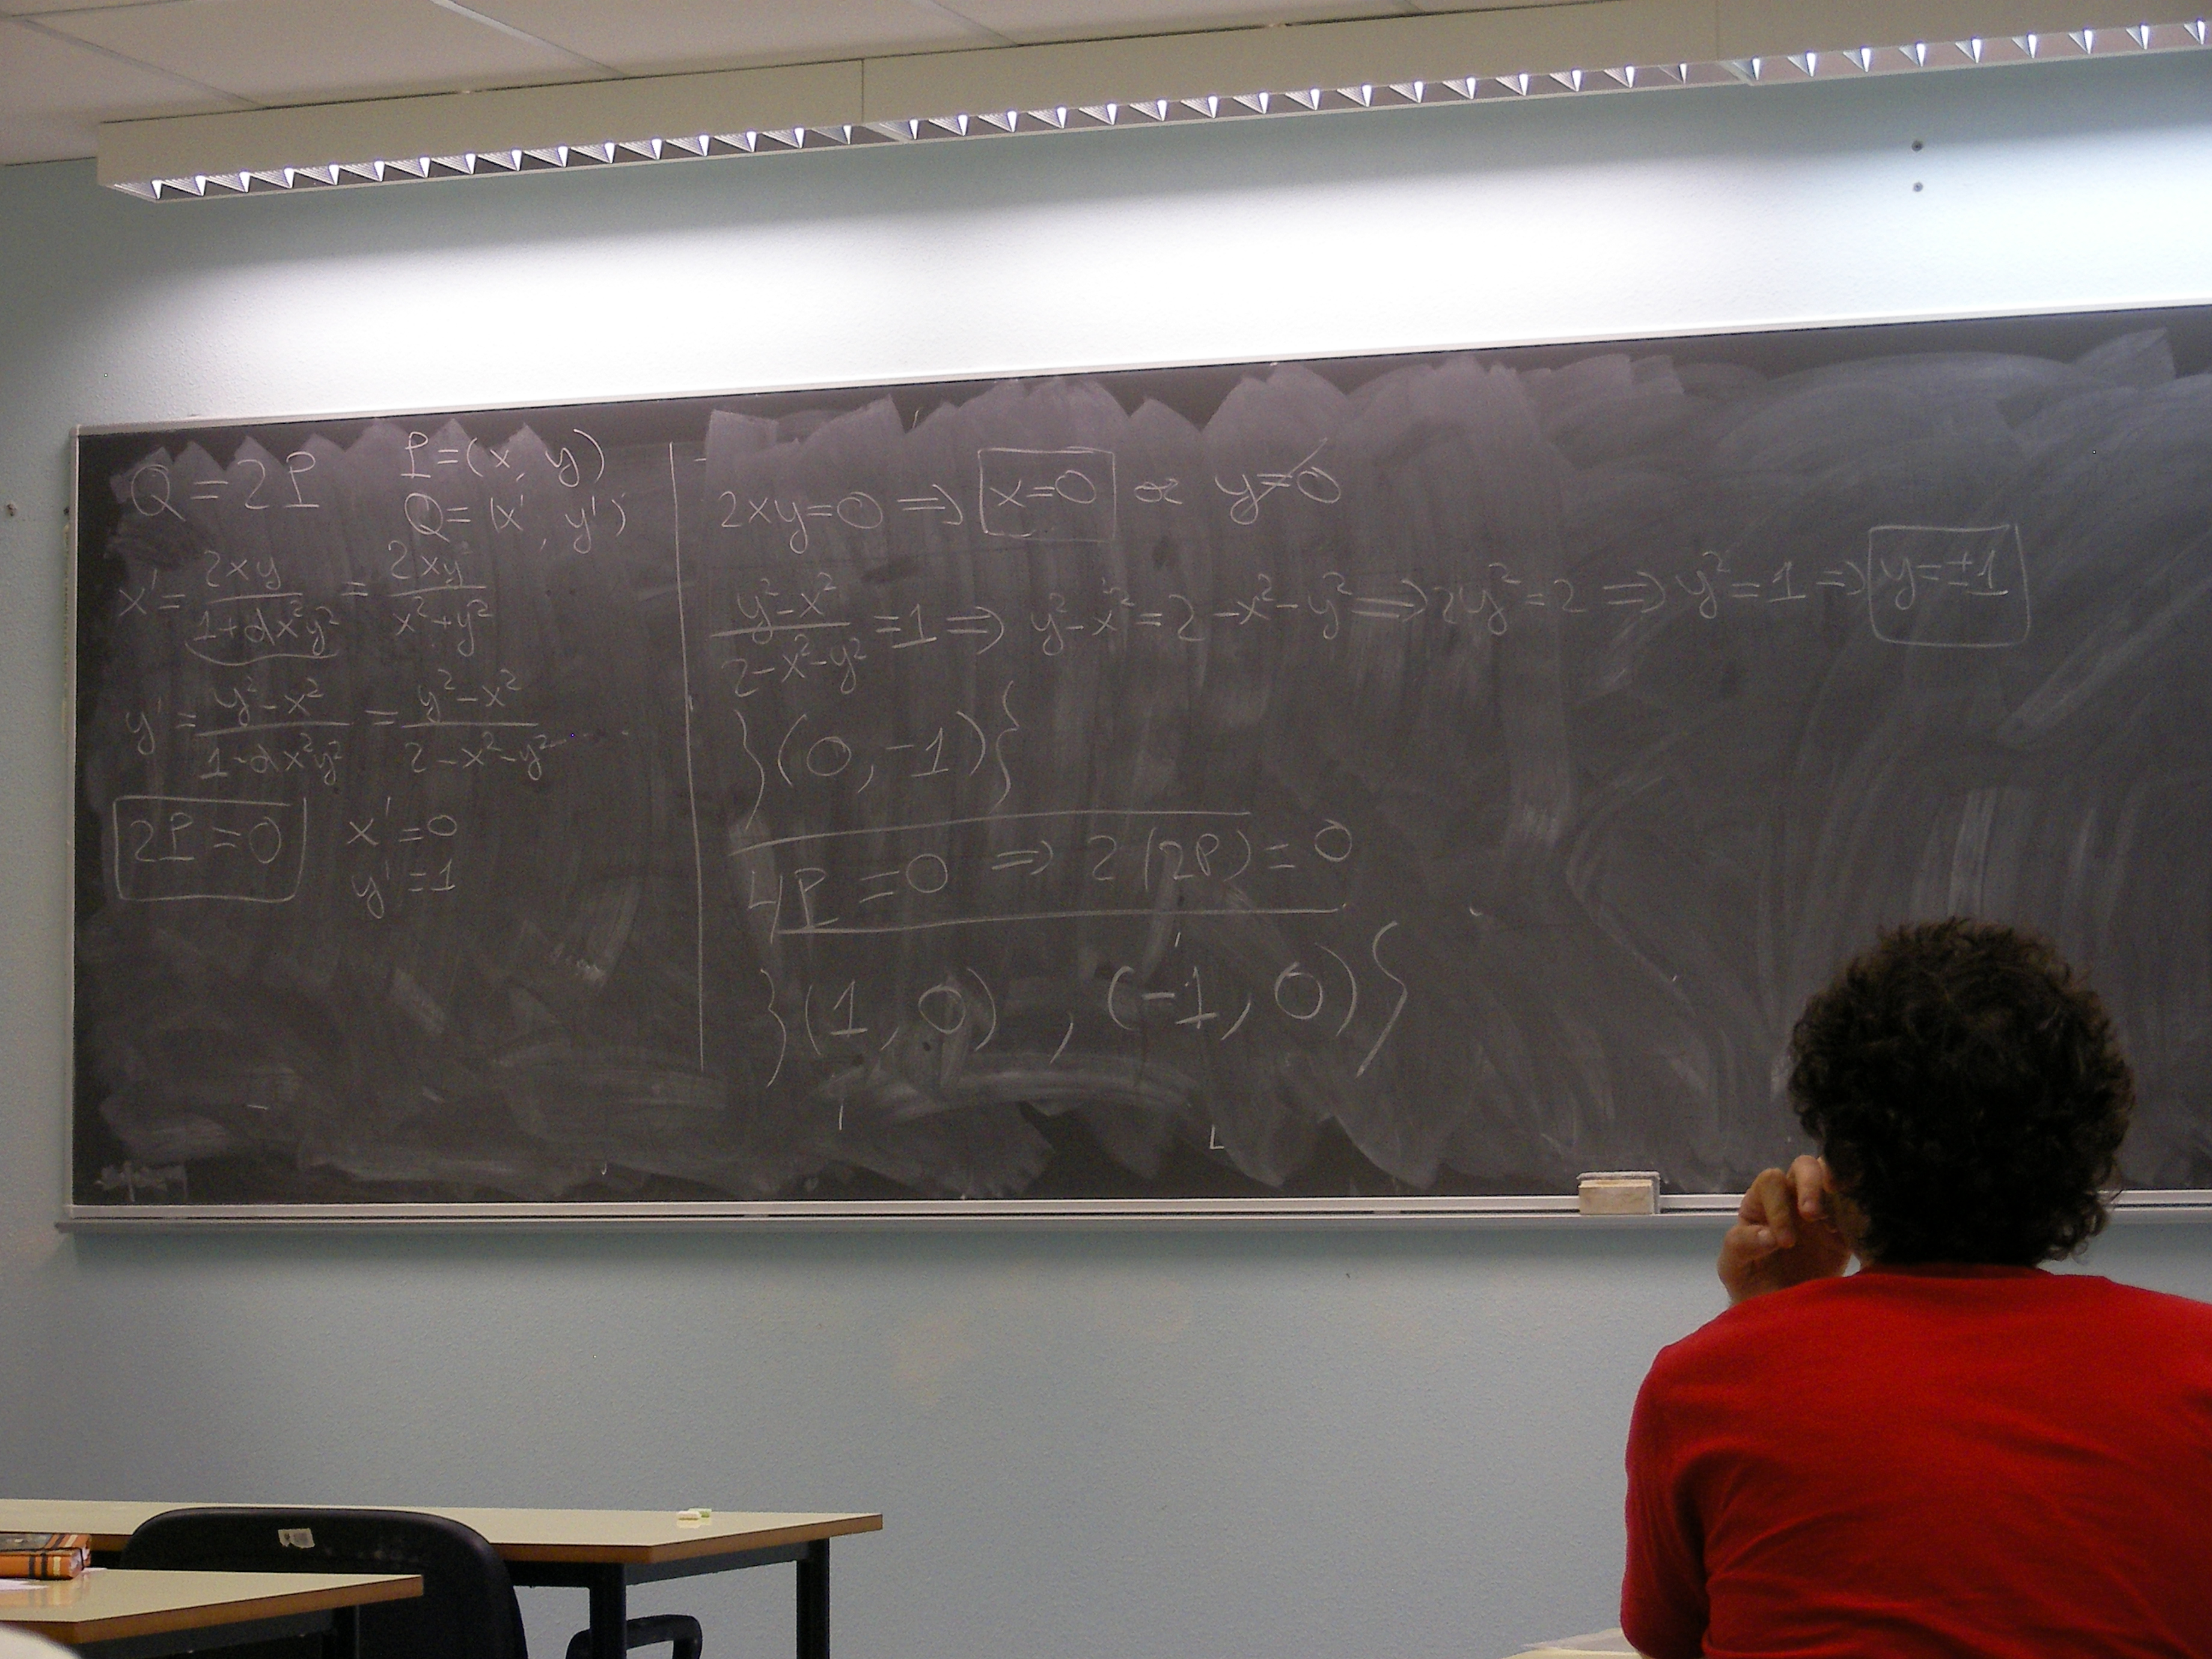 Q = 2P
P = (x, y)
Q = (x', y')
x' = 2xy / 1+dx²y² = 2xy / x²+y²
y' = y²-x² / 1-dx²y² = y²-x² / 2-x²-y²
2P = 0
x' = 0
y' = 1
2xy=0 ⇒ x=0 or y=0
y²-x² / 2-x²-y² = 1 ⇒ y²-x² = 2-x²-y² ⇒ 2y² = 2 ⇒ y² = 1 ⇒ y=±1
{(0,-1)}
4P = 0 ⇒ 2(2P) = 0
{(1, 0), (-1, 0)}